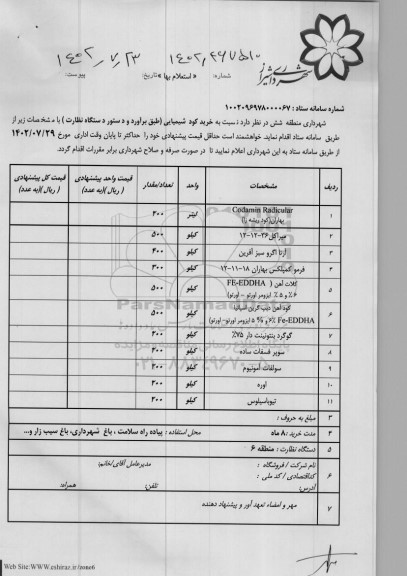 شهرداری شیراز
شماره: ۱۴۰۲,۶۹۷۵۱۰
« استعلام بها »
تاریخ: ۱۴۰۲,۷,۲۳
پیوست:
شماره سامانه ستاد : ۱۰۰۲۰۹۶۹۷۸۰۰۰۰۶۷
شهرداری منطقه شش در نظر دارد : نسبت به خرید کود شیمیایی (طبق براورد و دستور دستگاه نظارت ) با مشخصات زیر از
طریق سامانه ستاد اقدام نماید. خواهشمند است حداقل قیمت پیشنهادی خود را حداکثر تا پایان وقت اداری مورخ ۱۴۰۲/۰۷/۲۹
از طریق سامانه ستاد به این شهرداری اعلام نمایید تا در صورت صرفه و صلاح شهرداری برابر مقررات اقدام گردد.
ردیف مشخصات واحد تعداد/مقدار قیمت واحد پیشنهادی ( ریال )(به عدد) قیمت کل پیشنهادی ( ریال )(به عدد)
۱ Codamin Radicular لیتر ۲۰۰
۲ میراکل ۳۶-۱۲-۱۲ کیلو ۵۰۰
۳ ارتا اگرو سبز آفرین کیلو ۴۰۰
۴ فرمو کمپلکس بهاران ۱۸-۱۱-۱۲ کیلو ۳۰۰
۵ کلات آهن ( FE-EDDHA کیلو ۵۰۰
۶٪ و ۵٪ ایزومر اورتو – اورتو)
۶ Fe-EDDHA ۶٪ و ۵ % ایزومر اورتو-اورتو) کیلو ۵۰۰
۷ گوگرد بنتونیت دار ۷۵٪ کیلو ۲۰۰
۸ سوپر فسفات ساده کیلو ۲۰۰
۹ سولفات آمونیوم کیلو ۲۰۰
۱۰ اوره کیلو ۲۰۰
۱۱ تیوباسیلوس کیلو ۲۰۰
۳ مبلغ به حروف :
۴ مدت خرید : ۸ ماه محل استفاده : پیاده راه سلامت ، باغ شهرداری، باغ سیب زار و...
۵ دستگاه نظارت : منطقه ۶
۶ نام شرکت / فروشگاه : مدیرعامل آقای/خانم:
کداقتصادی / کد ملی :
آدرس: تلفن: همراه:
۷ مهر و امضاء تعهد آور و پیشنهاد دهنده
Web Site:WWW.eshiraz.ir/zone6